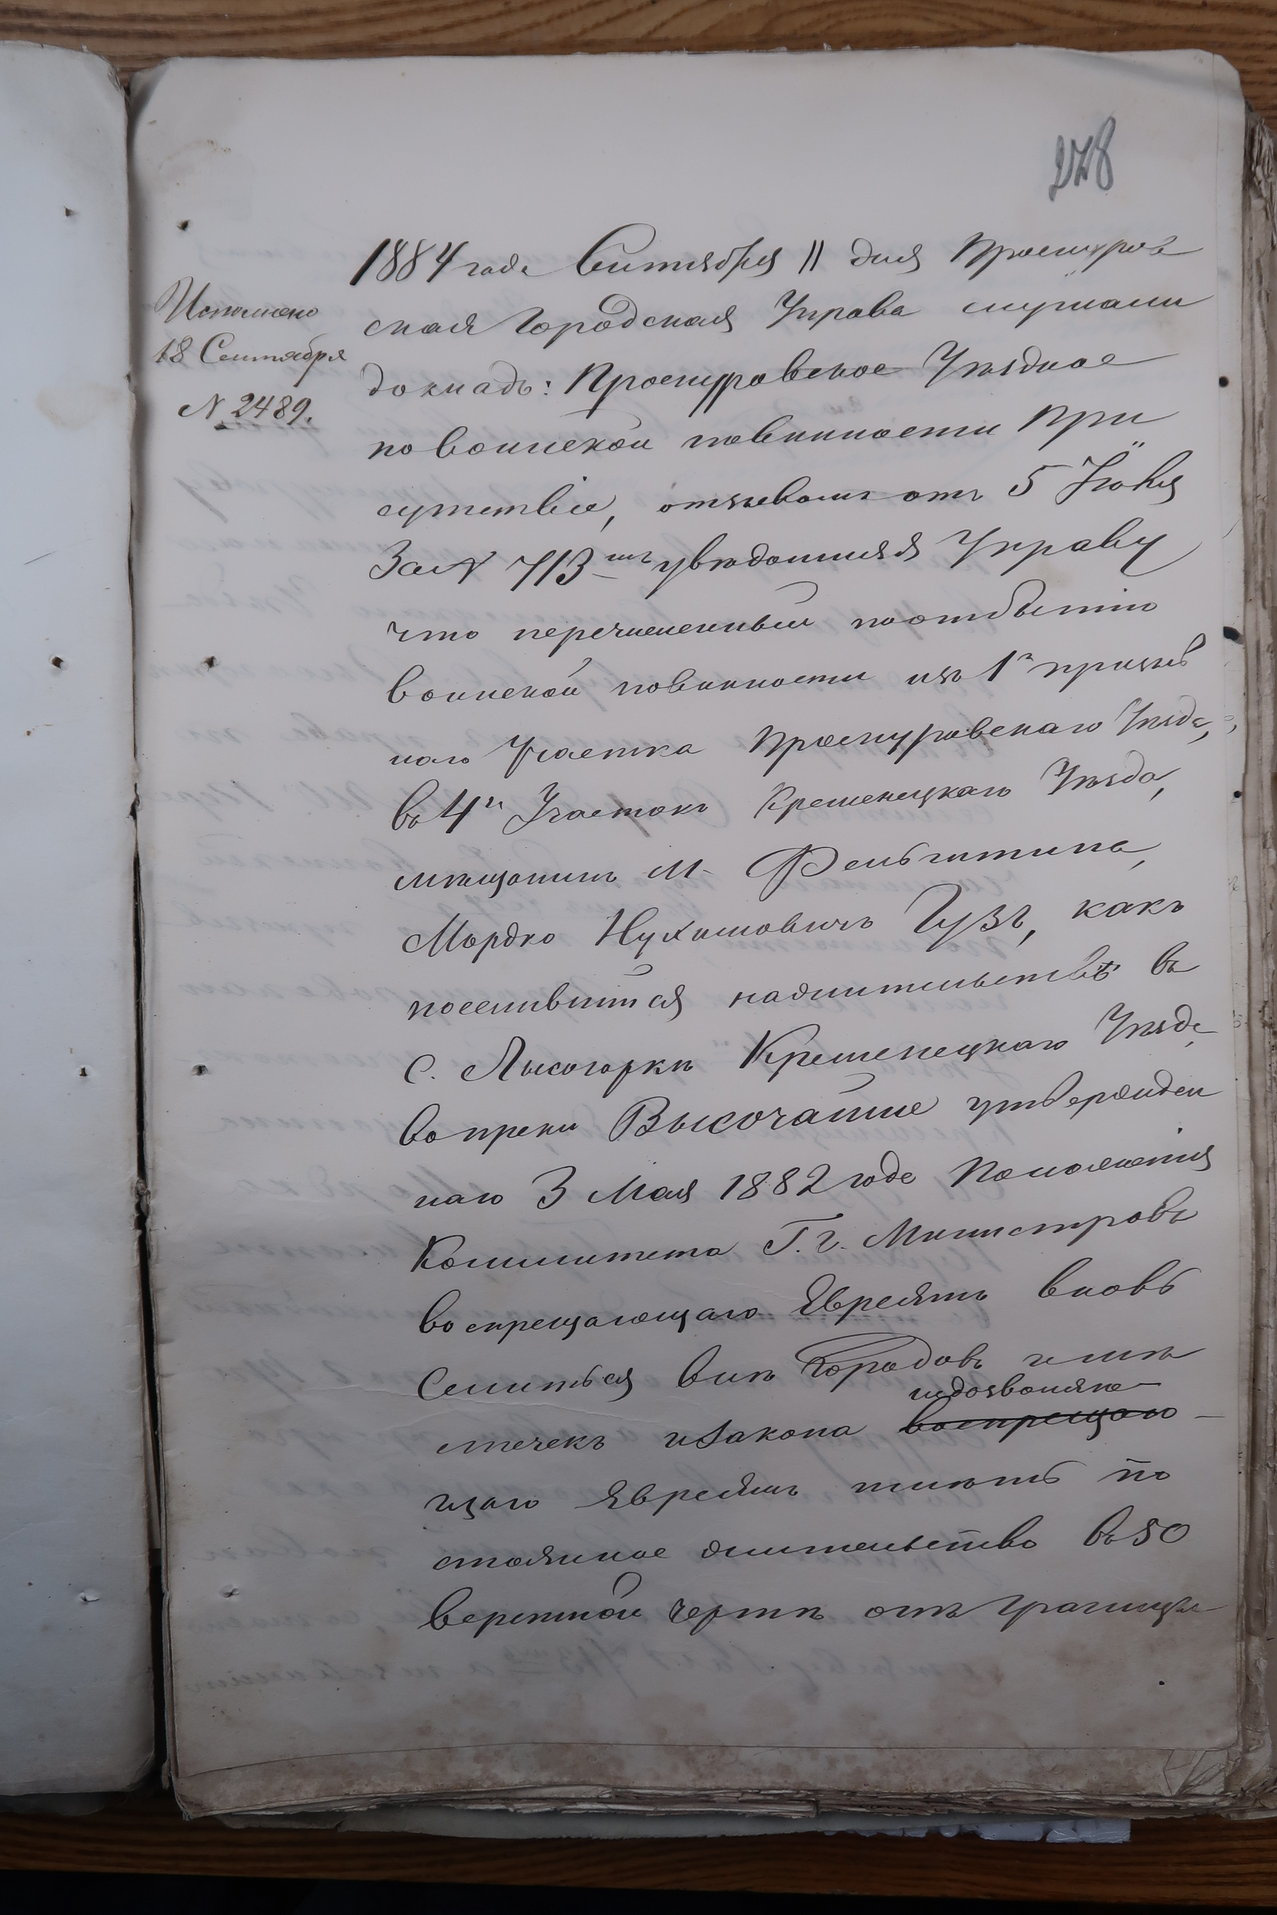 278
1884 года Сентября 11 дня Проскуров
ская Городская Управа слушали
докладъ: Проскуровское Уѣздное
по воинской повинности При
сутствіе, отзывомъ отъ 5 Іюня
За № 713-мъ увѣдомляя Управу
что перечисленный поотбытію
воинской повинности изъ 1го призыв
наго Участка Проскуровскаго Уѣзда,
въ 4й Участокъ Кременецкаго Уѣзда,
мѣщанинъ М. Фельштина,
Мордко Нухимовичъ Гузъ, какъ
поселившійся нажительствѣ въ
С. Лысогоркѣ Кременецкаго Уѣзда
вопреки Высочайше утвержден
наго 3 Мая 1882 года Положенія
Комитета Г.г. Министровъ
воспрещающаго Евреямъ вновь
Селиться внѣ Городовъ имѣ
недозволяю
стечекъ изакона воспрещаю
щаго Евреямъ имѣть по
стоянное жительство въ 50
верстной чертѣ отъ границы
Исполнено
18 Сентября
№ 2489.